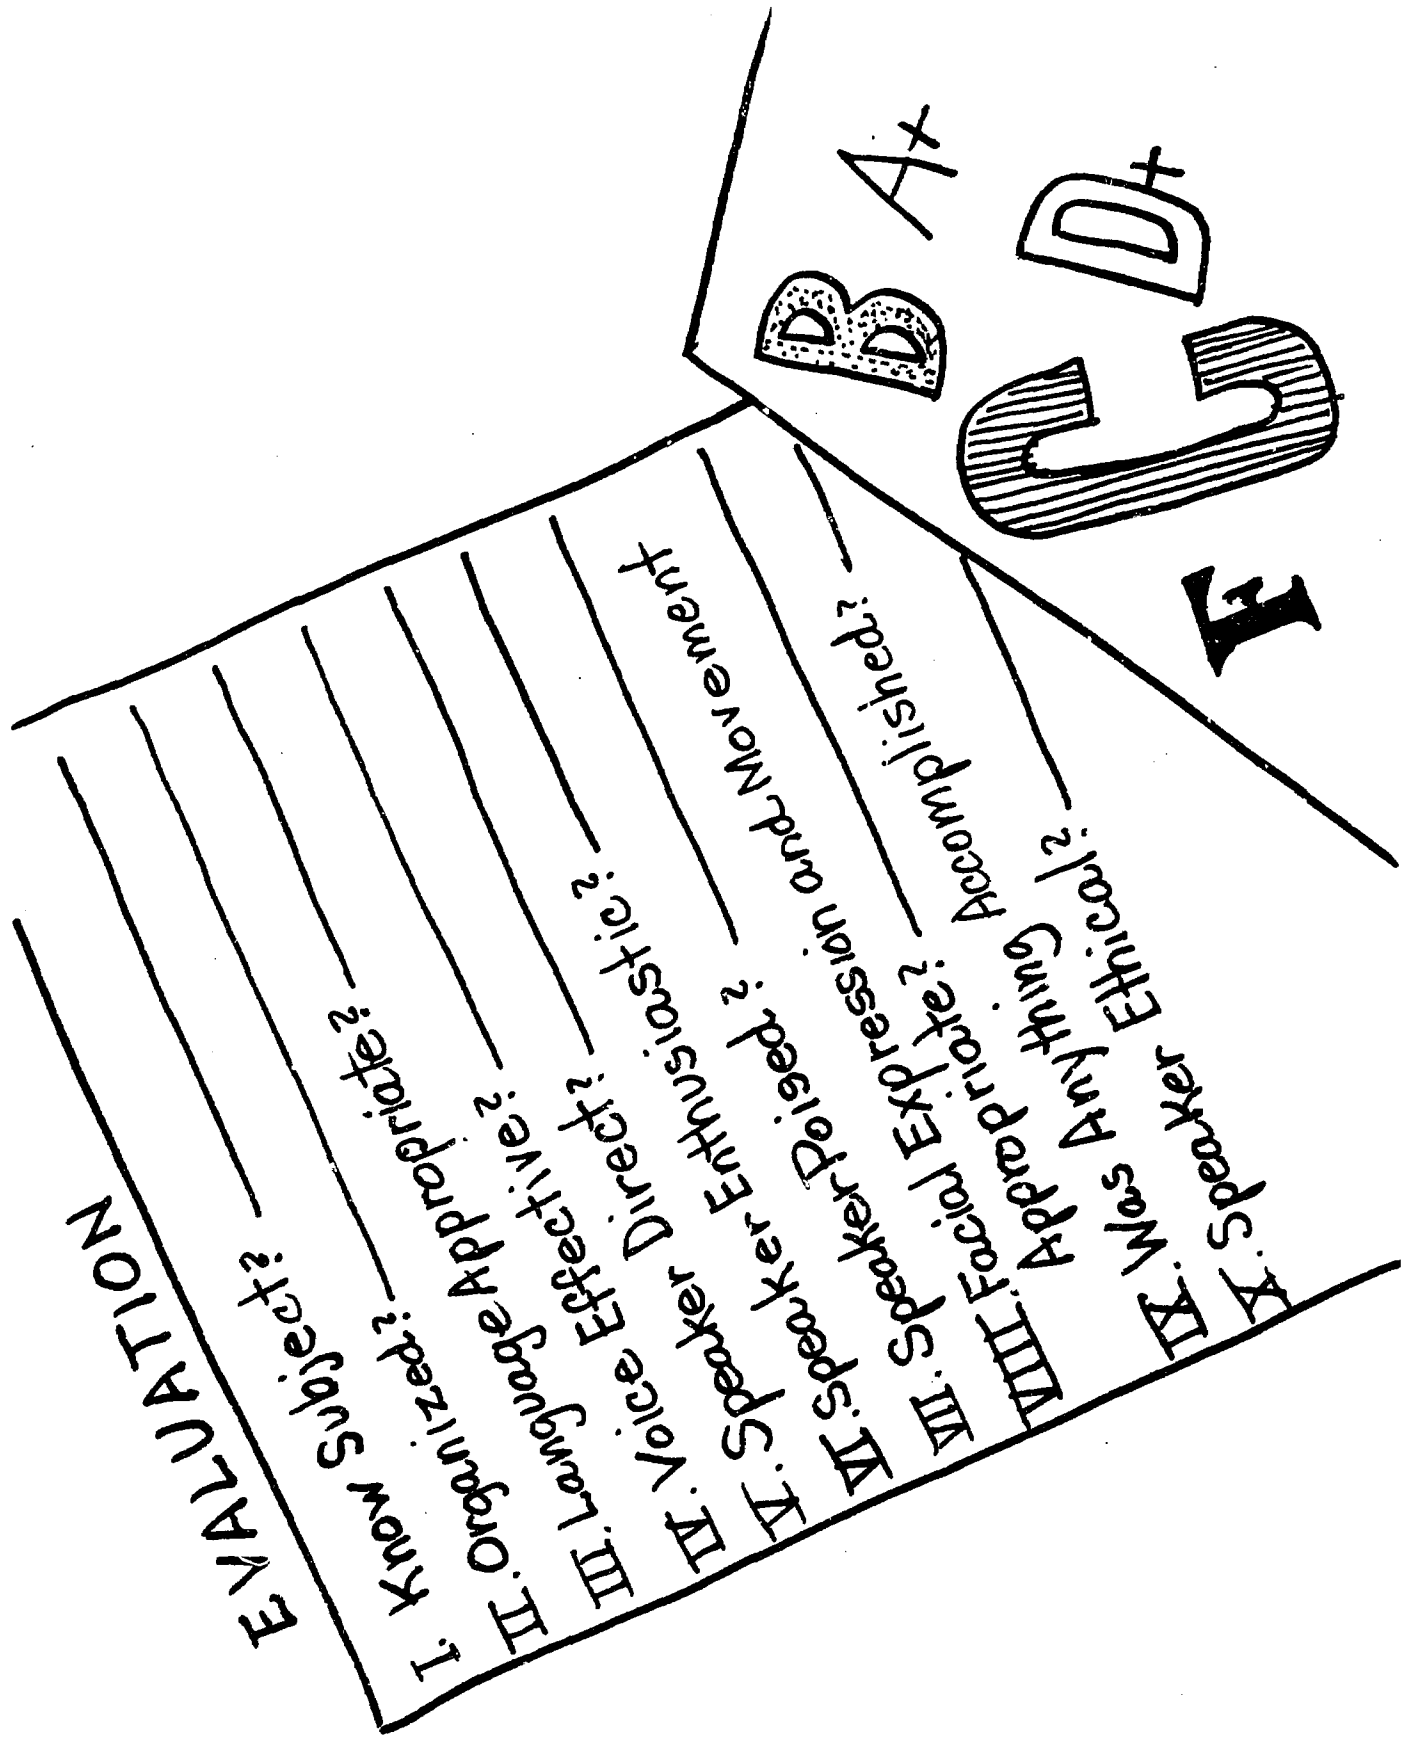 EVALUATION
I. Know Subject?
II. Organized?
III. Language Appropriate?
IV. Voice Effective?
V. Speaker Direct?
VI. Speaker Enthusiastic?
VII. Speaker Poised?
VIIII. Facial Expression and Movement
Appropriate?
IX. Was Anything Accomplished?
X. Speaker Ethical?
A+
B
D+
C
F